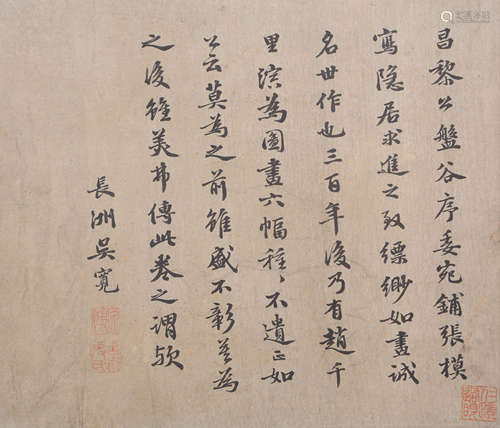 昌黎公盤谷序委宛鋪張模
寫隐居求進之致縹緲如畫誠
名世作也三百年後乃有趙千
里淙為圖畫六幅種〻不遺正如
公云莫為之前雖盛不彰莫為
之後雖美弗傳此卷之謂歟
長洲吳寬